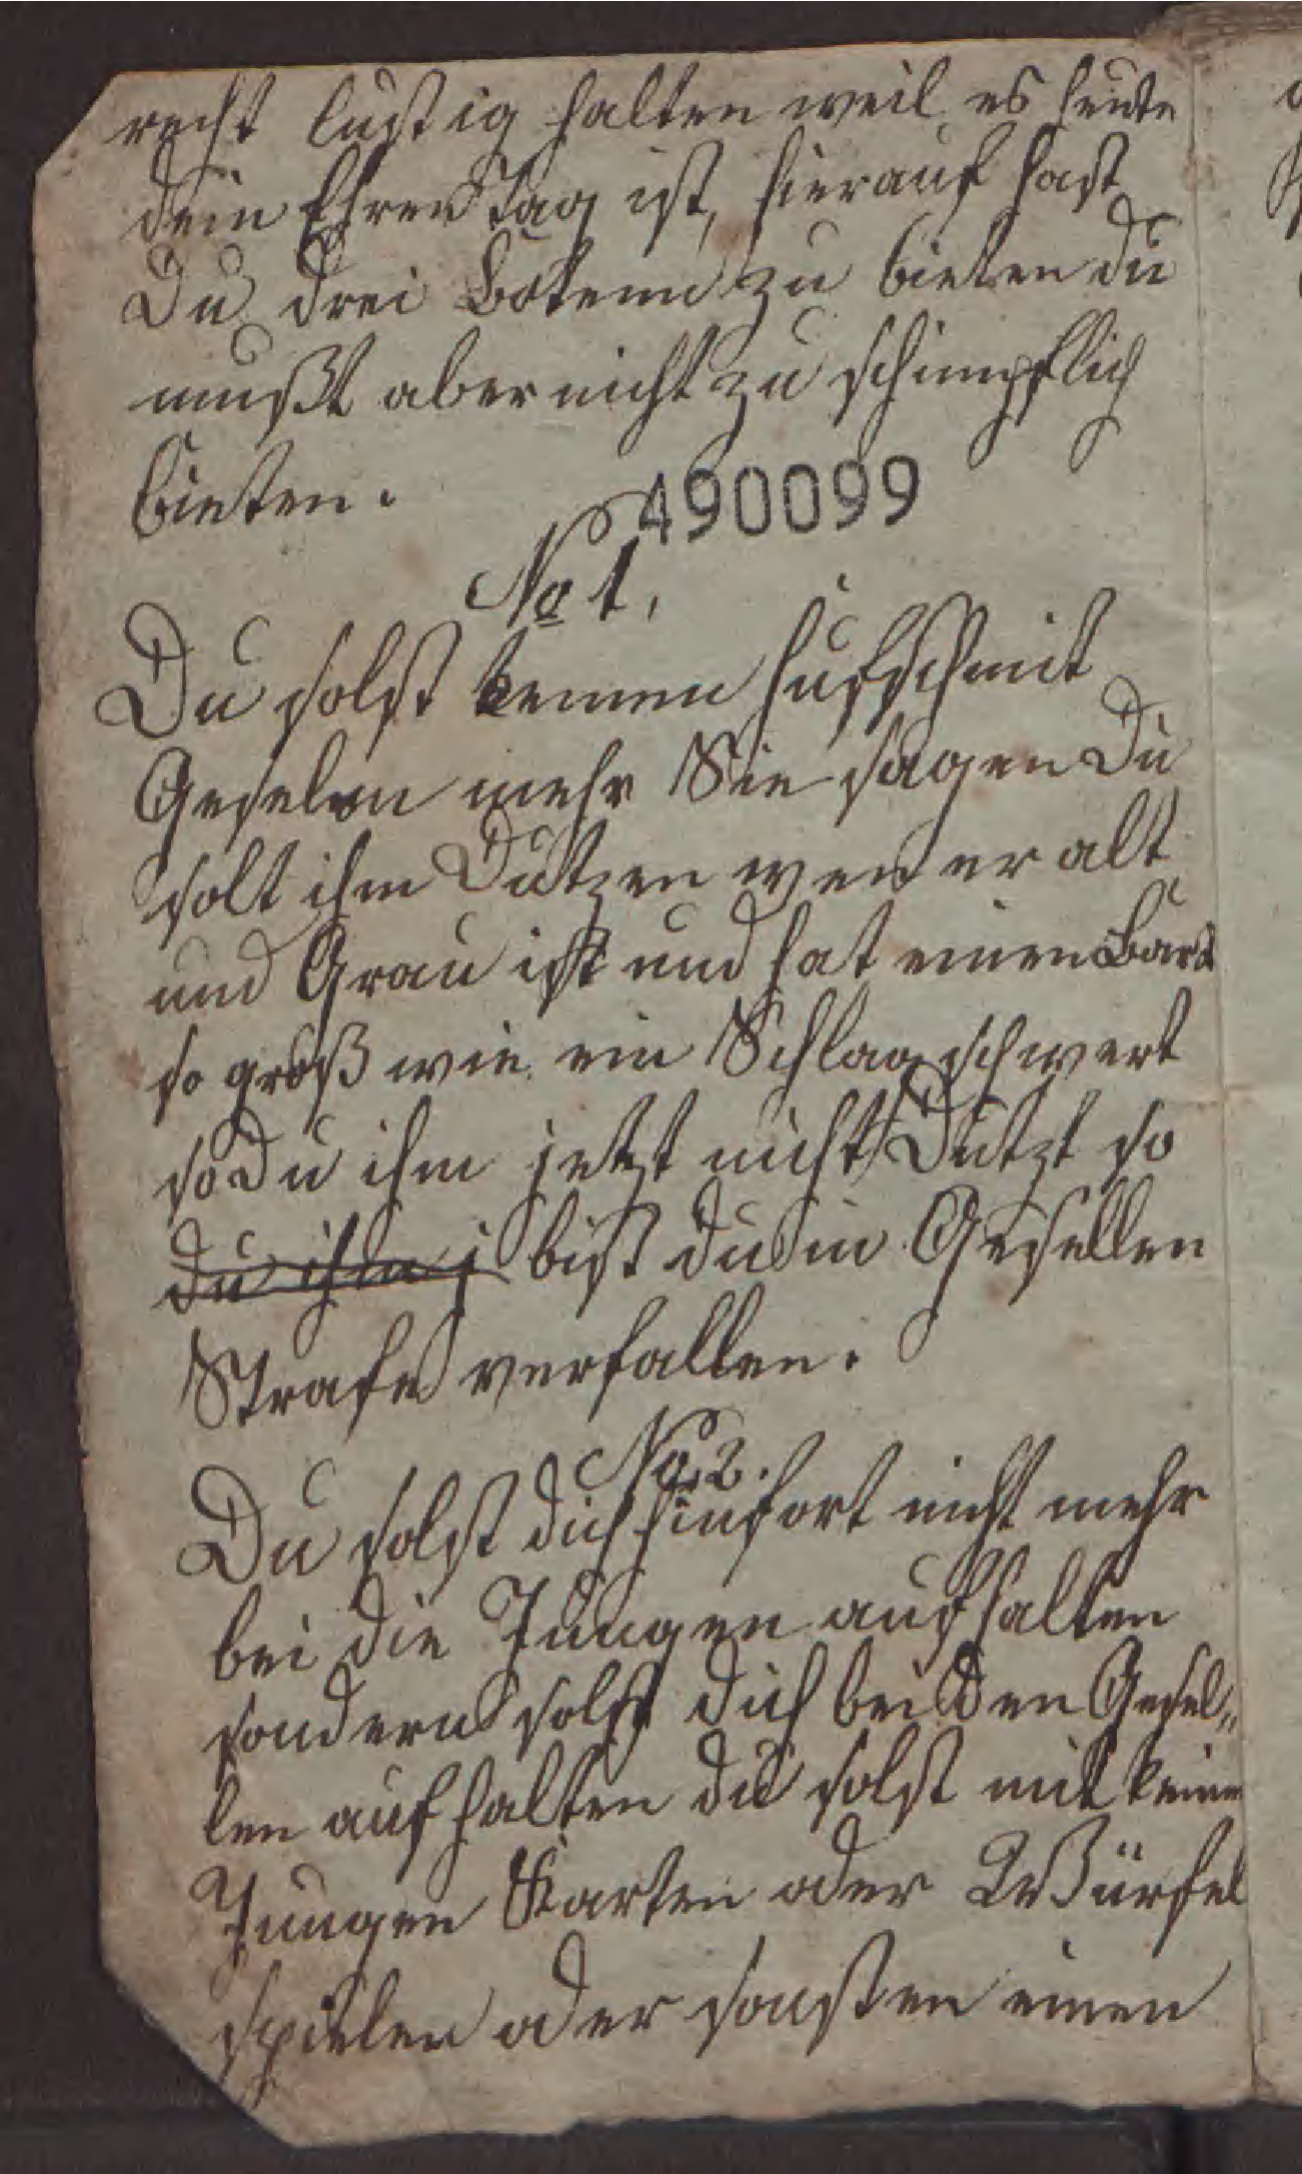 recht lustig halten weil es heute
dein Ehren Tag ist, hierauf hast
Du drei Botenn zu bieten du
mußt aber nicht zu schimpflich
bieten.
490099
No 1,
Du solst keinen Hufschmit
Geselen mehr Sie sagen Du
solt ihm Dutzen wen er alt
und Grau ist und hat einen Bart
so groß wie ein Schlag schwert
so Du ihm jetzt nicht Dutzt so
du ihm j bist du in Gesellen
Strafe verfallen.
No 2.
Du solst dich hinfort nicht mehr
bei die Jungen aufhalten
sondern solst dich bei den Gesel„
len aufhalten du solst mit keine
Jungen Karten oder Würfel
spielen oder sonsten einen